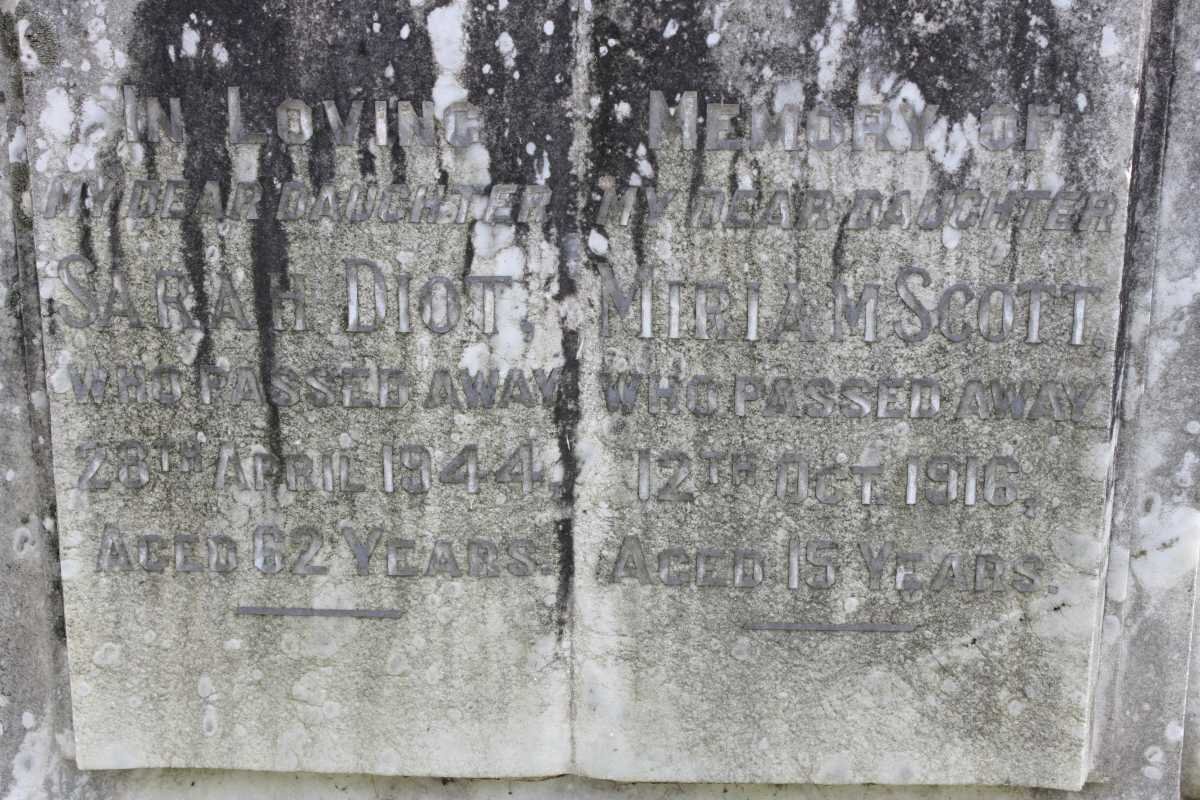 In Loving
My dear daughter
Sarah Diot,
who passed away
28th April 1944,
Aged 62 Years.
Memory of
My dear daughter
Miriam Scott,
who passed away
12th Oct. 1916,
Aged 15 Years.